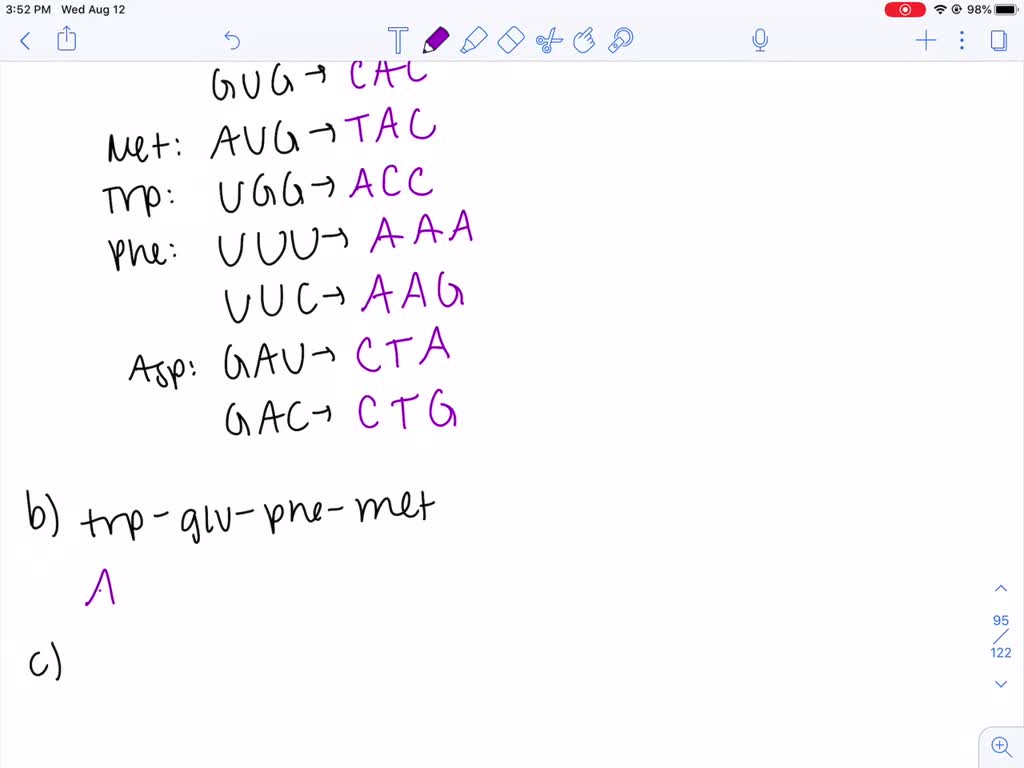 3:52 PM Wed Aug 12 98%
GUG→ CAC
Met: AUG→ TAC
Trp: UGG→ ACC
Phe: UUU→ AAA
UUC→ AAG
Asp: GAU→ CTA
GAC→ CTG
b) trp-glu-phe-met
A
c)
95
122